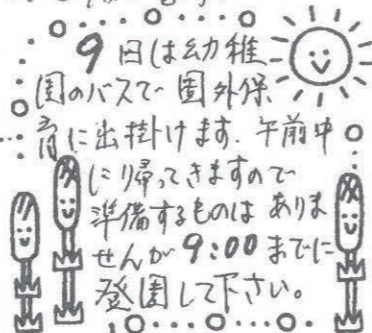 9日は幼稚
園のバスで園外保
育に出掛けます。午前中
に帰ってきますので
準備するものは ありま
せんが9:00までに
登園して下さい。